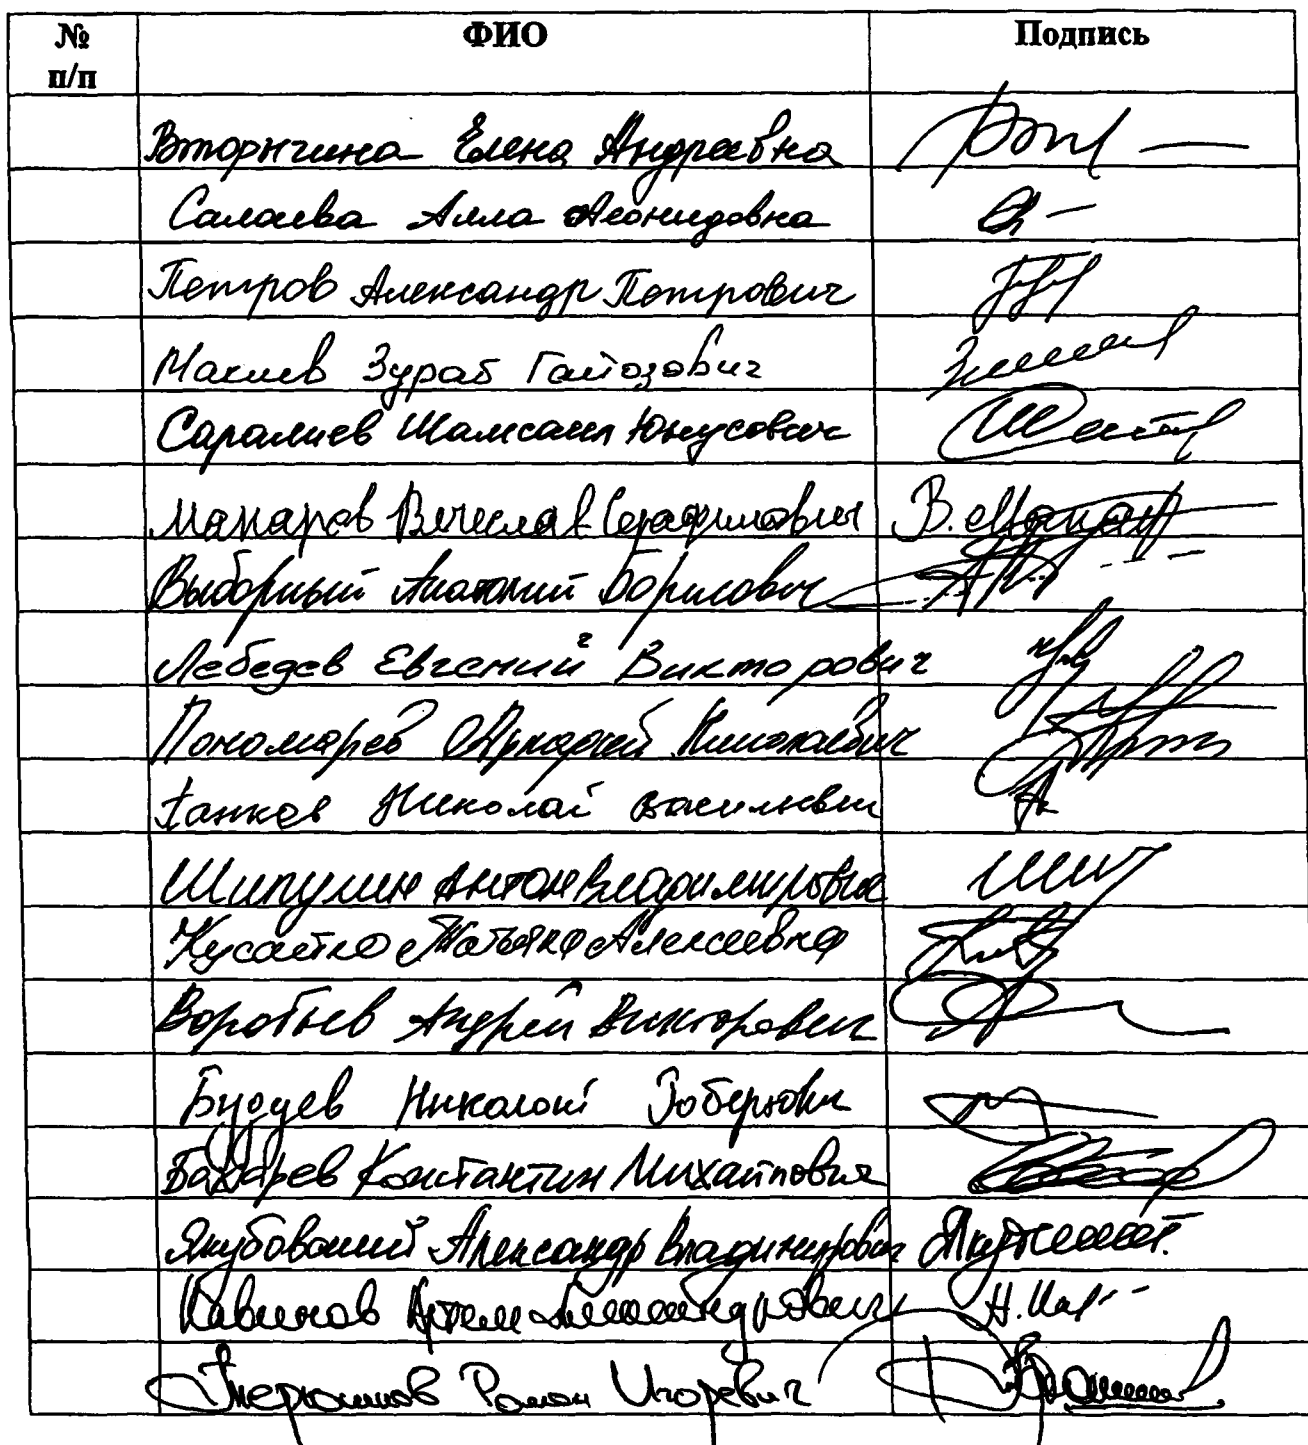 № п/п ФИО Подпись
Вторыгина Елена Андреевна
Салаева Алла Леонидовна
Петров Александр Петрович
Макиев Зураб Гайозович
Саралиев Шамсаил Юнусович
Макаров Вячеслав Серафимович В. Макаров
Выборный Анатолий Борисович
Лебедев Евгений Викторович
Пономарев Аркадий Николаевич
Панков Николай Васильевич
Шипулин Антон Владимирович
Кусайко Татьяна Алексеевна
Воробьев Андрей Викторович
Будуев Николай Робертович
Бахарев Константин Михайлович
Якубовский Александр Владимирович
Кавинов Артем Александрович
Терюшков Роман Игоревич